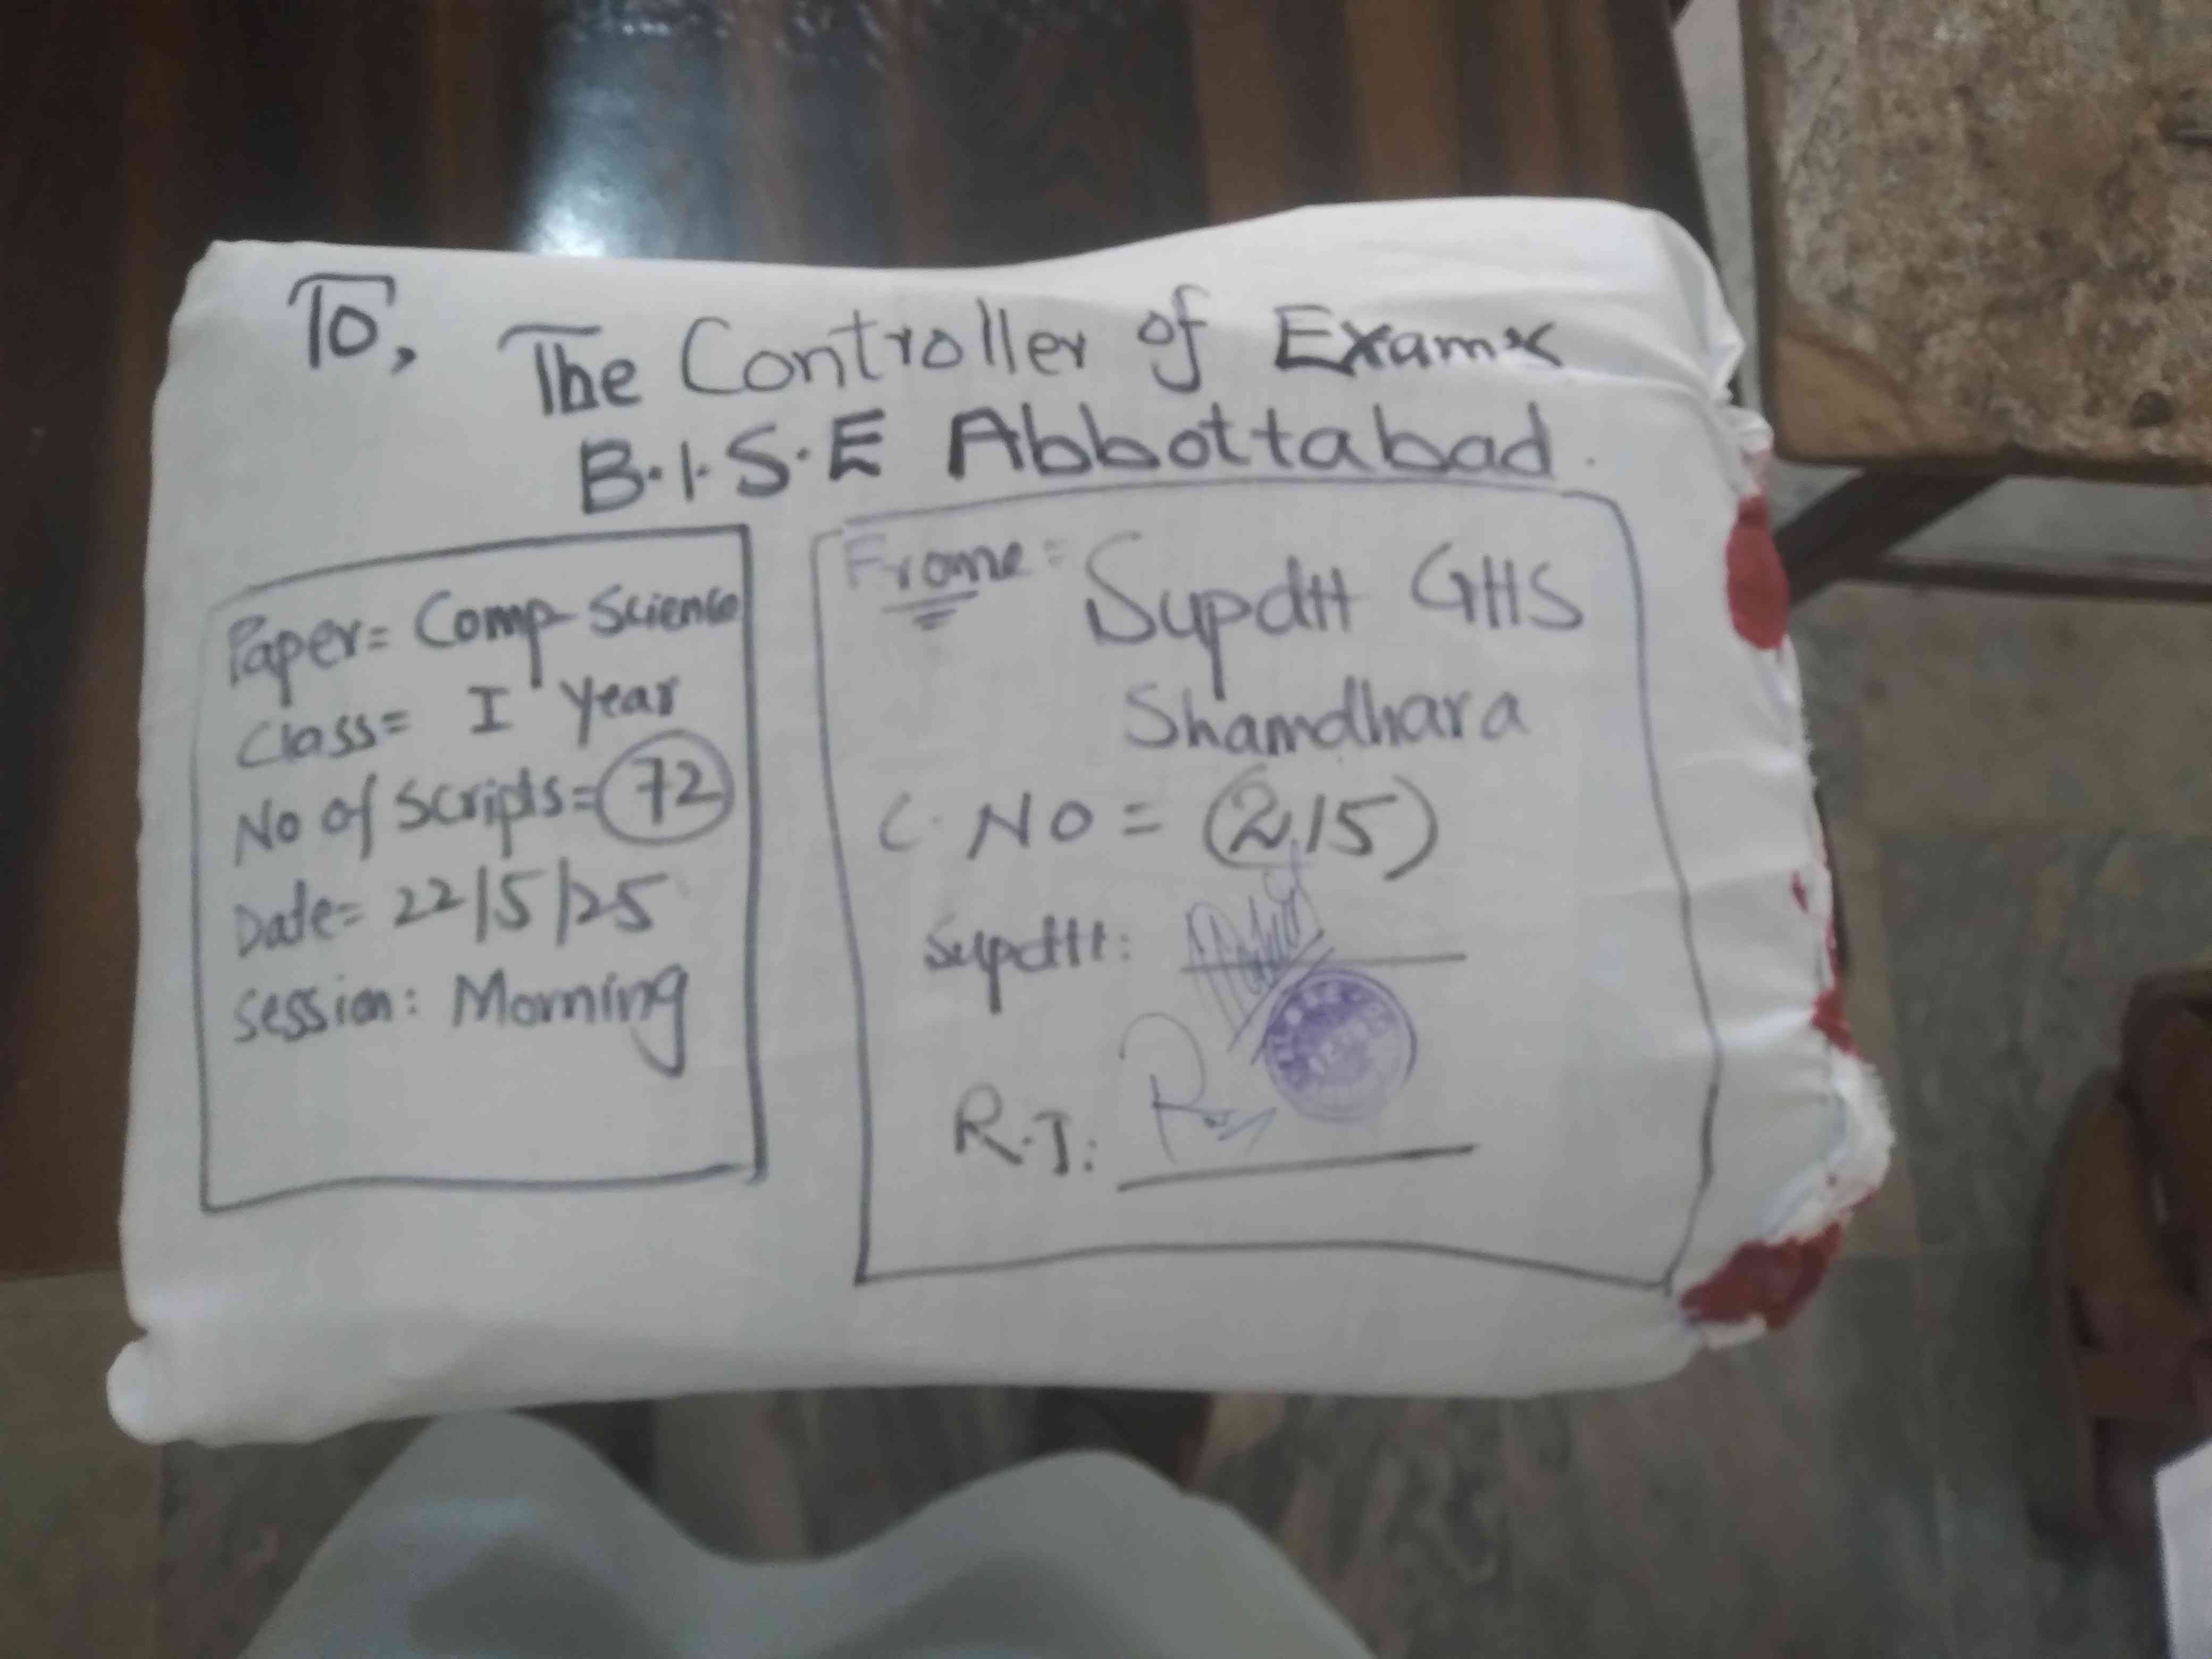 To,
The Controller of Exams
B.I.S.E Abbottabad.
Paper= Comp-Science
Class= I Year
No of Scripts= 72
Date= 22/5/25
Session: Morning
Frome= Supdtt GHS
Shamdhara
C. NO = (215)
Supdtt:
R.I: